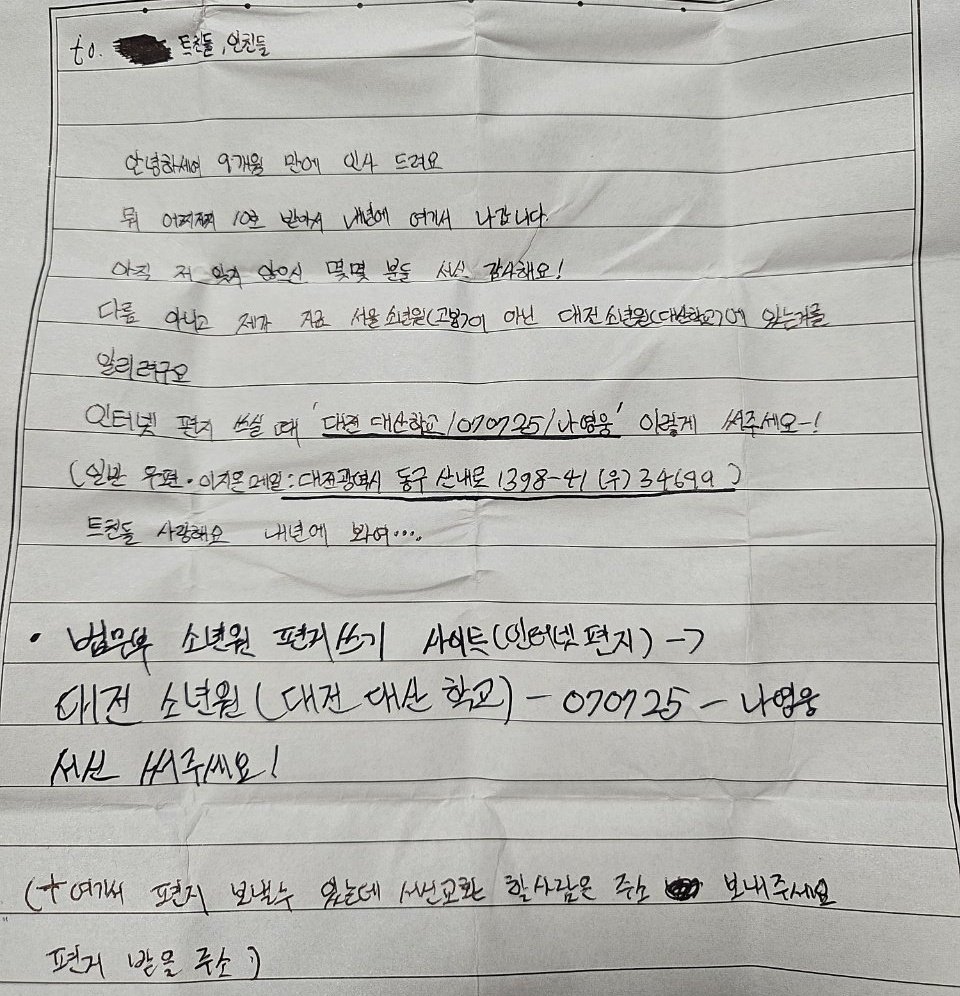 to. 트친들, 인친들
안녕하세여 9개월 만에 인사 드려요
뭐 어찌저찌 10호 받아서 내년에 여기서 나갑니다.
아직 저 잊지 않으신 몇몇 분들 서신 감사해요!
다름 아니고 제가 지금 서울소년원(고봉)이 아닌 대전소년원(대산학교)에 있는거를
알리려구요
인터넷 편지 쓰실 때 '대전 대산학교/070725/나영웅' 이렇게 써주세요-!
(일반 우편·이지문메일: 대전광역시 동구 산내로 1398-41 (우)34699)
트친들 사랑해요 내년에 봐여....
• 법무부 소년원 편지쓰기 사이트(인터넷 편지) ->
대전 소년원(대전 대산 학교) - 070725 - 나영웅
서신 써주세요!
(+여기서 편지 보낼수 있는데 서신교환 할사람은 주소 보내주세요
편지 받을 주소)